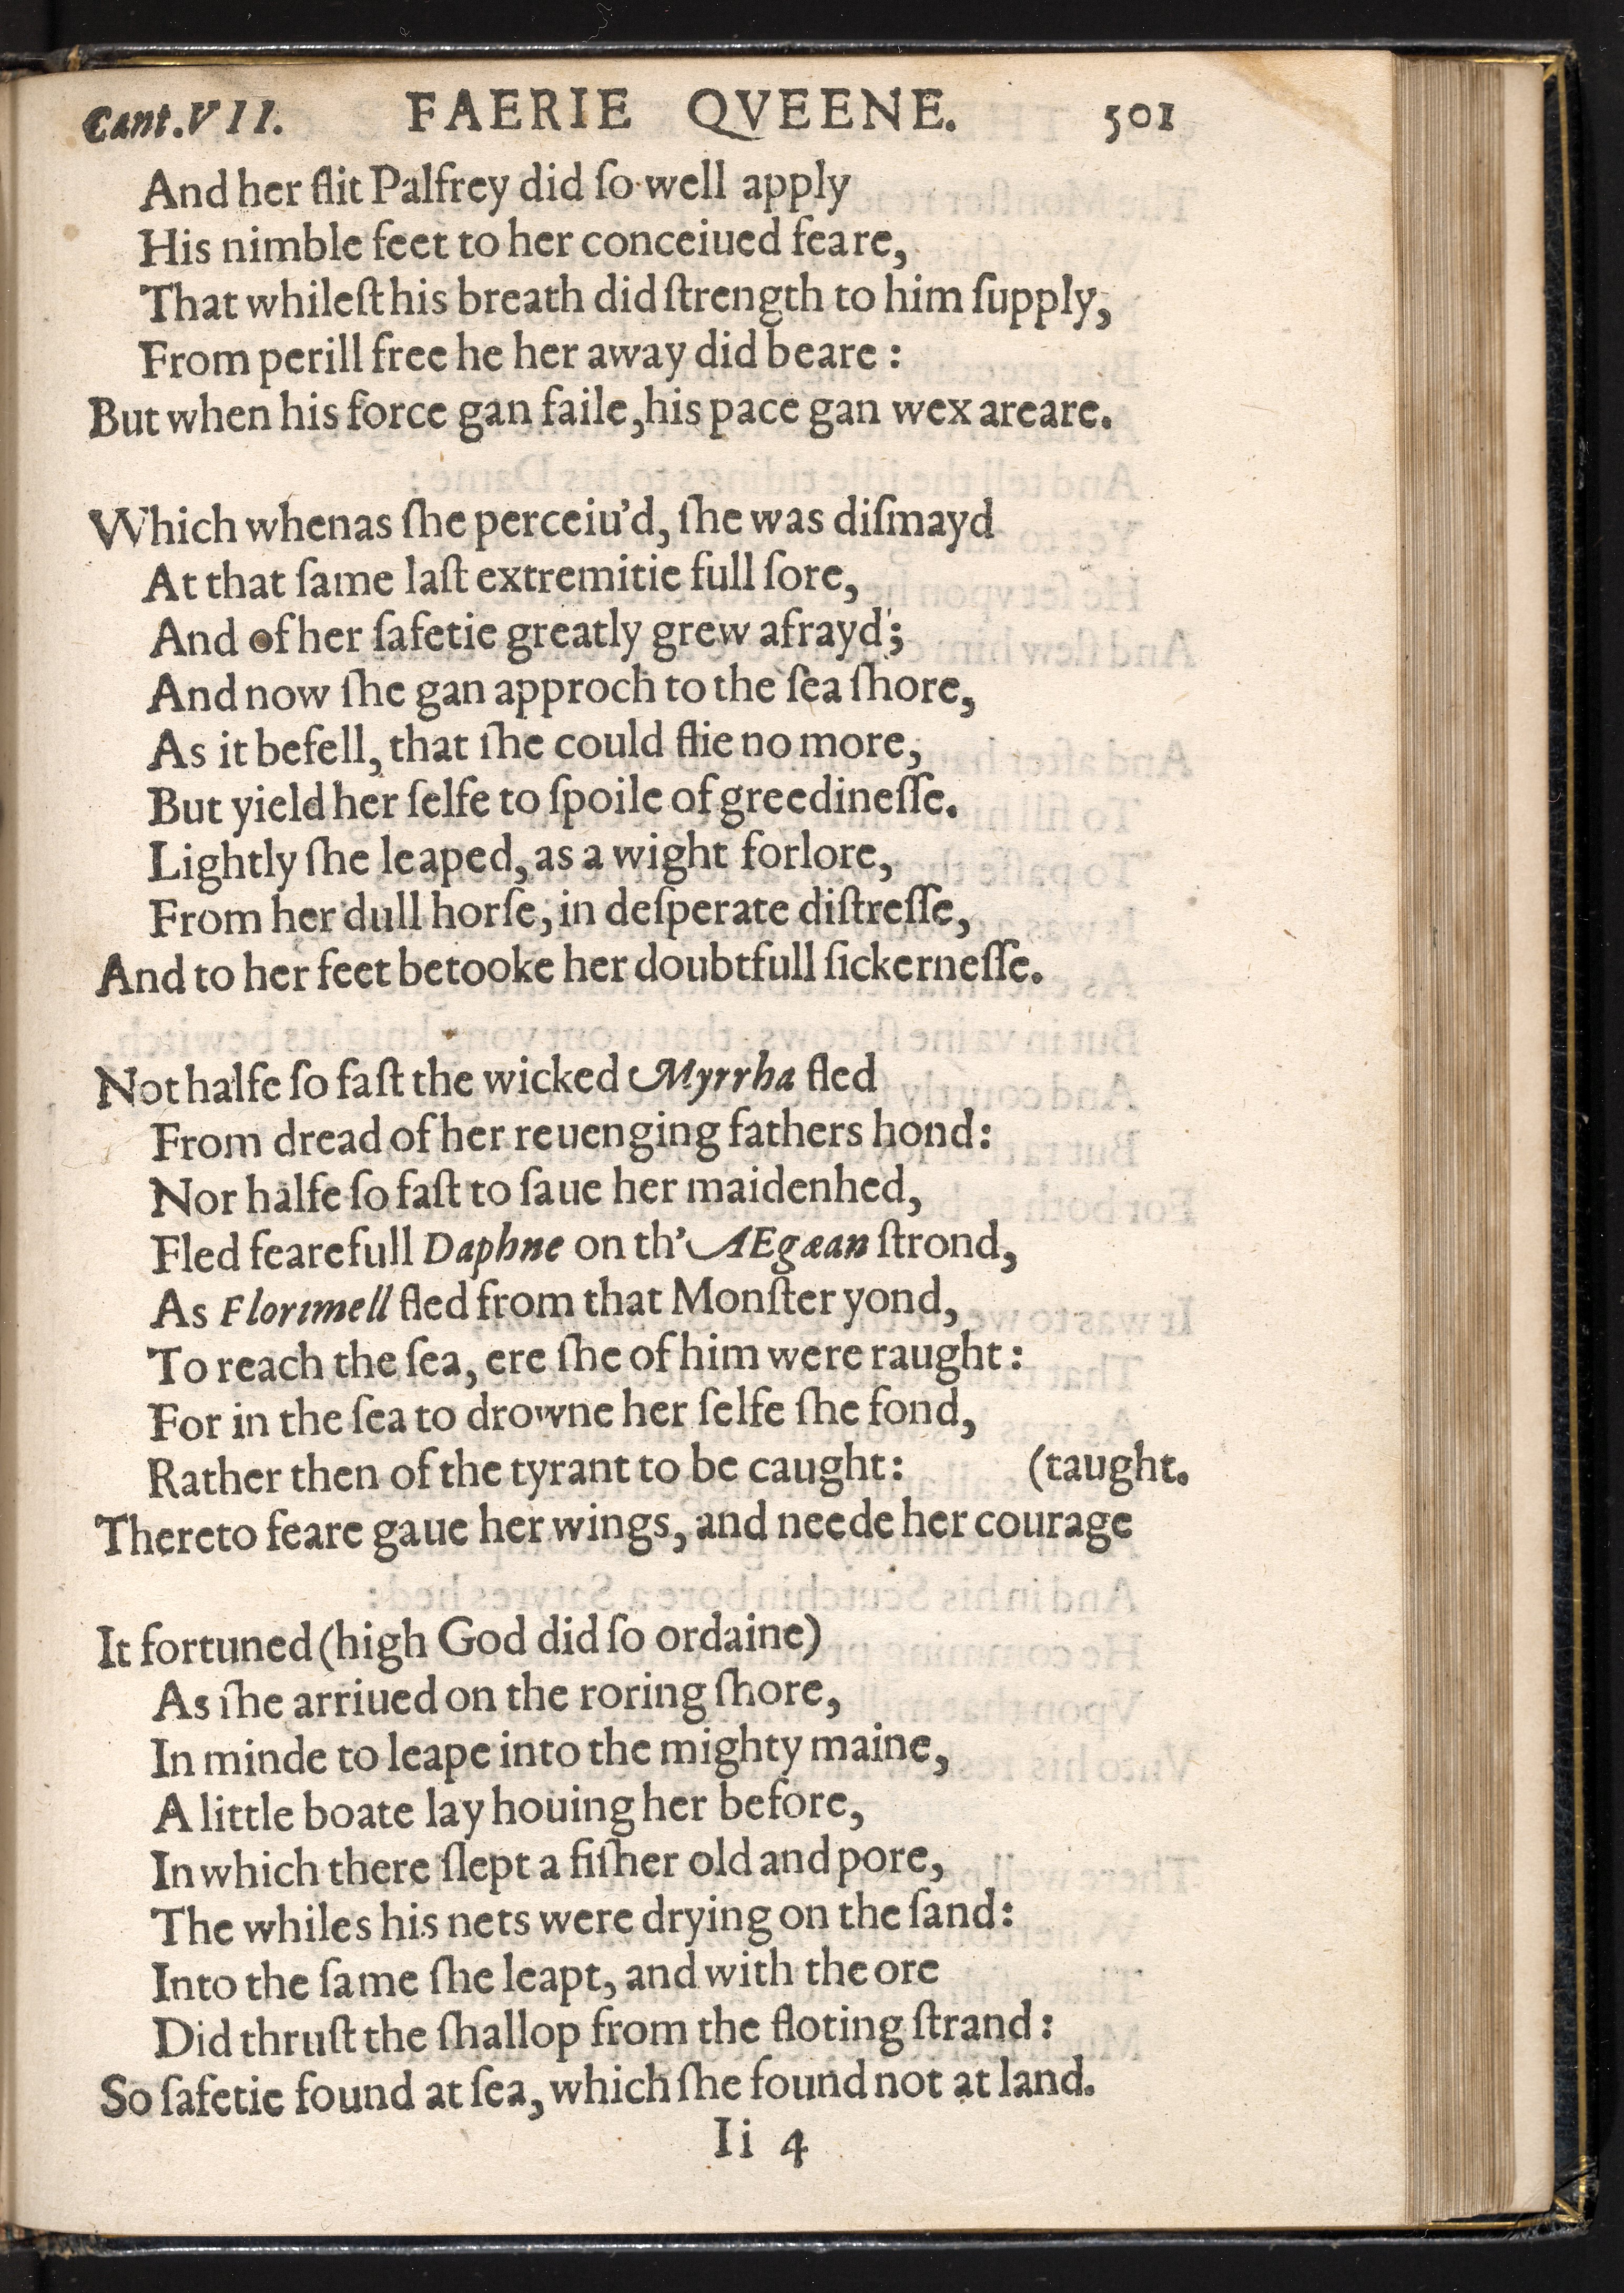 Cant.VII. FAERIE QVEENE. 501
And her flit Palfrey did ſo well apply
His nimble feet to her conceiued feare,
That whileſt his breath did ſtrength to him ſupply,
From perill free he her away did beare:
But when his force gan faile, his pace gan wex areare.
Which whenas ſhe perceiu'd, ſhe was diſmayd
At that ſame laſt extremitie full ſore,
And of her ſafetie greatly grew afrayd;
And now ſhe gan approch to the ſea ſhore,
As it befell, that ſhe could flie no more,
But yield her ſelfe to ſpoile of greedineſſe.
Lightly ſhe leaped, as a wight forlore,
From her dull horſe, in deſperate diſtreſſe,
And to her feet betooke her doubtfull ſickerneſſe.
Not halfe ſo faſt the wicked Myrrha fled
From dread of her reuenging fathers hond:
Nor halfe ſo faſt to ſaue her maidenhed,
Fled fearefull Daphne on th' AEgæan ſtrond,
As Florimell fled from that Monſter yond,
To reach the ſea, ere ſhe of him were raught:
For in the ſea to drowne her ſelfe ſhe fond,
Rather then of the tyrant to be caught: (taught.
Thereto feare gaue her wings, and neede her courage
It fortuned (high God did ſo ordaine)
As ſhe arriued on the roring ſhore,
In minde to leape into the mighty maine,
A little boate lay houing her before,
In which there ſlept a fiſher old and pore,
The whiles his nets were drying on the ſand:
Into the ſame ſhe leapt, and with the ore
Did thruſt the ſhallop from the floting ſtrand:
So ſafetie found at ſea, which ſhe found not at land.
Ii 4